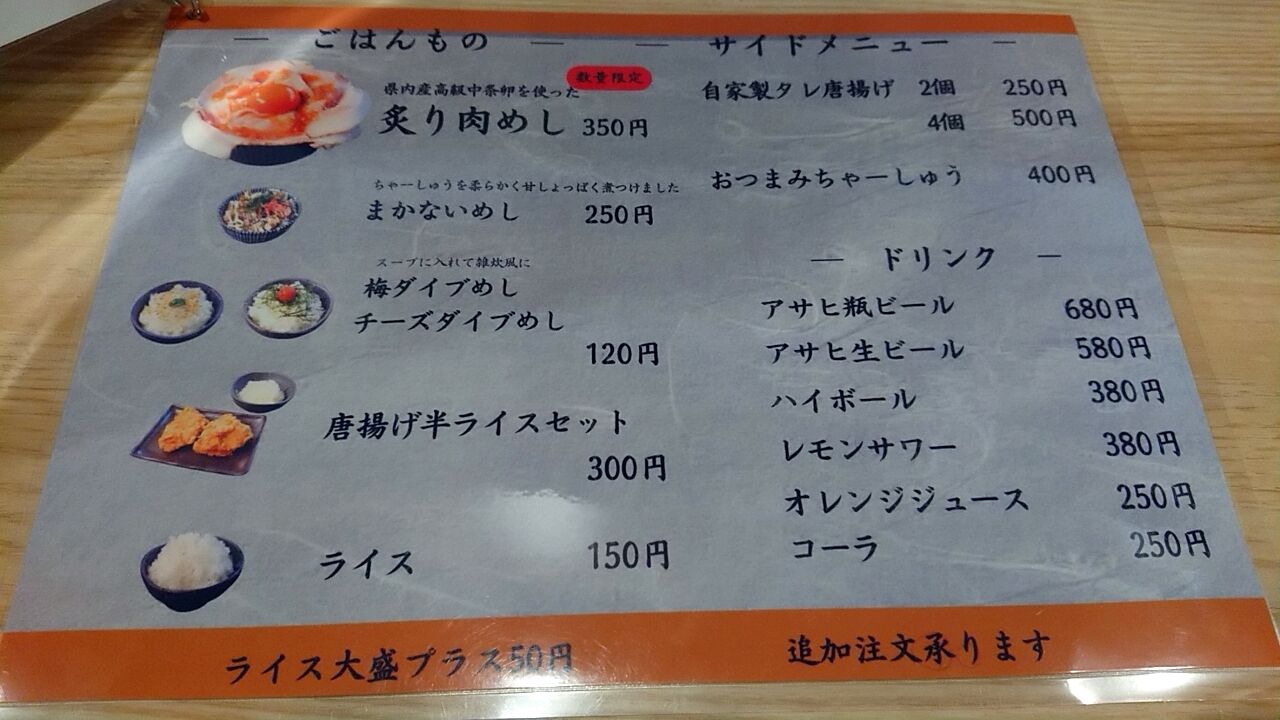 ごはんもの
数量限定
県内産高級中条卵を使った
炙り肉めし 350円
ちゃーしゅうを柔らかく甘しょっぱく煮つけました
まかないめし 250円
スープに入れて雑炊風に
梅ダイブめし
チーズダイブめし
120円
唐揚げ半ライスセット
300円
ライス 150円
サイドメニュー
自家製タレ唐揚げ 2個 250円
4個 500円
おつまみちゃーしゅう 400円
ドリンク
アサヒ瓶ビール 680円
アサヒ生ビール 580円
ハイボール 380円
レモンサワー 380円
オレンジジュース 250円
コーラ 250円
ライス大盛プラス50円
追加注文承ります